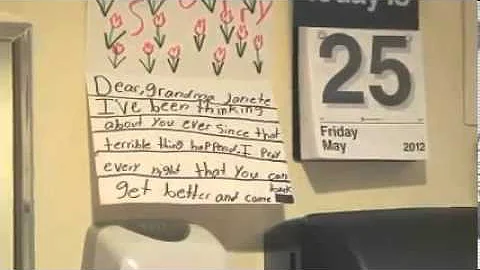 Sorry
Today is
Dear, grandma Janete
I've been thinking
about You ever since that
terrible thing happend, I Pray
every night that You can
get better and come back
25
Friday
May 2012